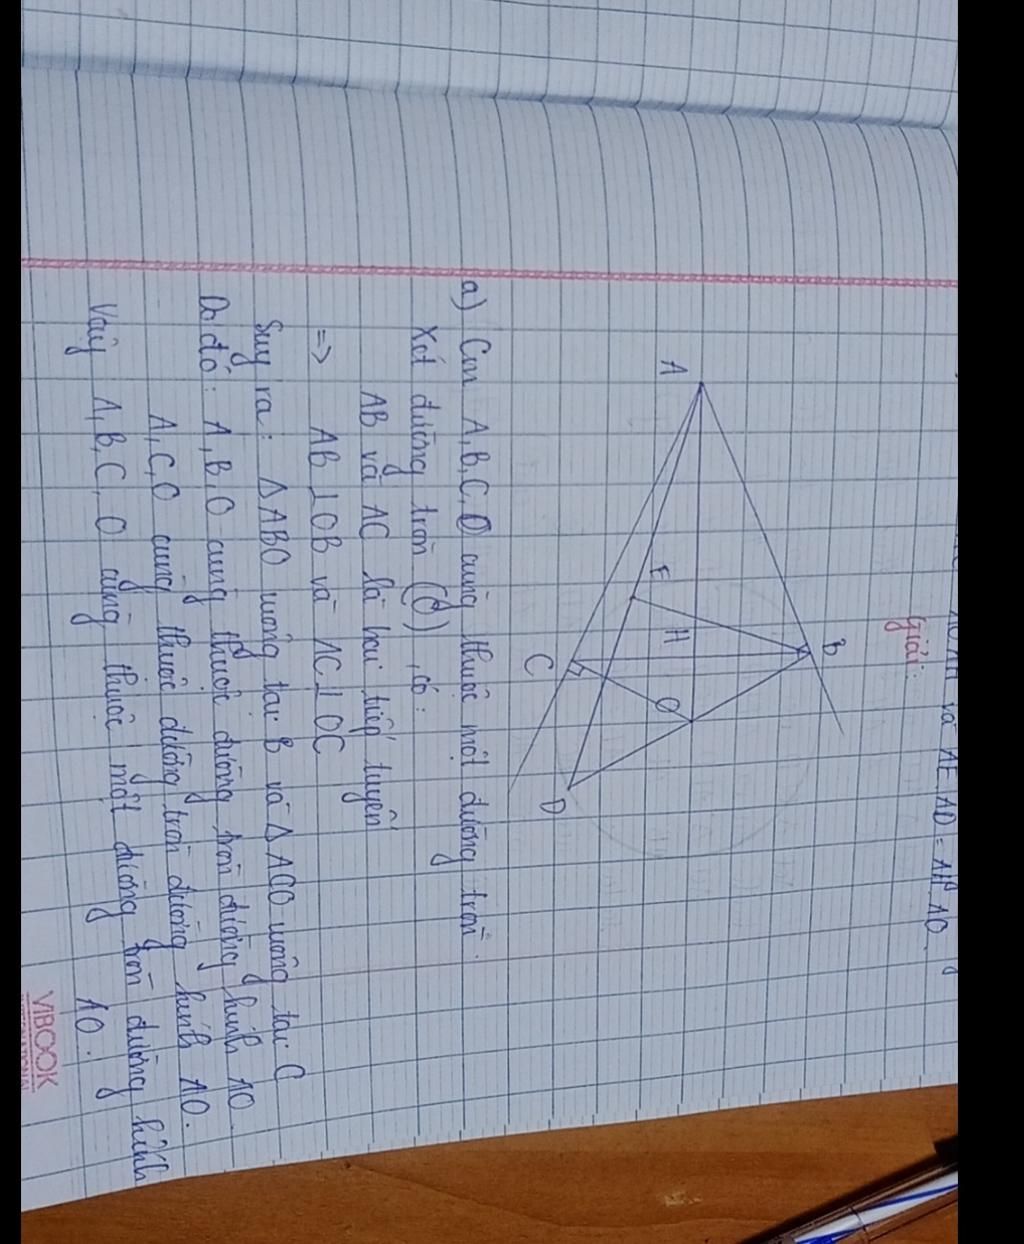 và AE.AD = AH.AO.
Giải:
A
B
E
H
C
O
D
a) Cm A, B, C, O cùng thuộc một đường tròn.
Xét đường tròn (O), có:
AB và AC là hai tiếp tuyến
=> AB ⊥ OB và AC ⊥ OC
Suy ra: Δ ABO vuông tại B và Δ ACO vuông tại C
Do đó: A, B, O cùng thuộc đường tròn đường kính AO
A, C, O cùng thuộc đường tròn đường kính AO.
Vậy A, B, C, O cùng thuộc một đường tròn đường kính
AO.
VIBOOK